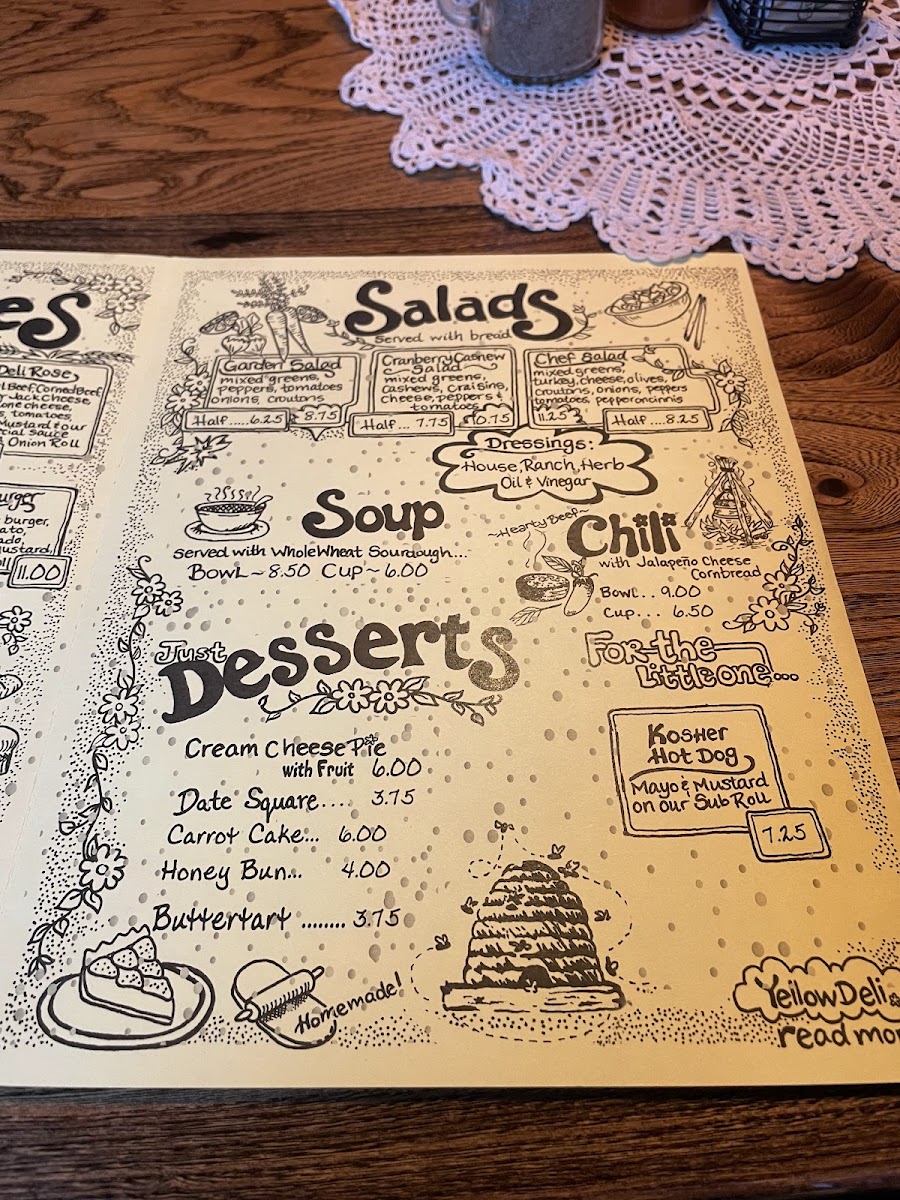 es
Deli Rose
Beef, Corned Beef
Jack Cheese
one cheese,
tomatoes
Mustard & our
cial sauce
Onion Roll
urger
burger,
ato,
ado,
ustard,
11.00
Salads
served with bread
Garden Salad
mixed greens,
peppers, tomatoes
onions, croutons
Half.....6.25 8.75
Cranberry Cashew
Salad
mixed greens,
cashews, craisins,
cheese, peppers &
tomatoes
Half... 7.75 10.75
Chef Salad
mixed greens,
turkey, cheese, olives,
croutons, onions, peppers
tomatoes, pepperoncinnis
11.25 Half....8.25
Dressings:
House, Ranch, Herb
Oil & Vinegar
Soup
served with Whole Wheat Sourdough...
Bowl~8.50 Cup~6.00
~Hearty Beef~
Chili
with Jalapeño Cheese
Cornbread
Bowl.. 9.00
Cup... 6.50
Just
Desserts
Cream Cheese Pie
with Fruit 6.00
Date Square.... 3.75
Carrot Cake... 6.00
Honey Bun... 4.00
Buttertart ........ 3.75
Homemade!
For the
Little one...
Kosher
Hot Dog
Mayo & Mustard
on our Sub Roll
7.25
Yellow Deli
read mor